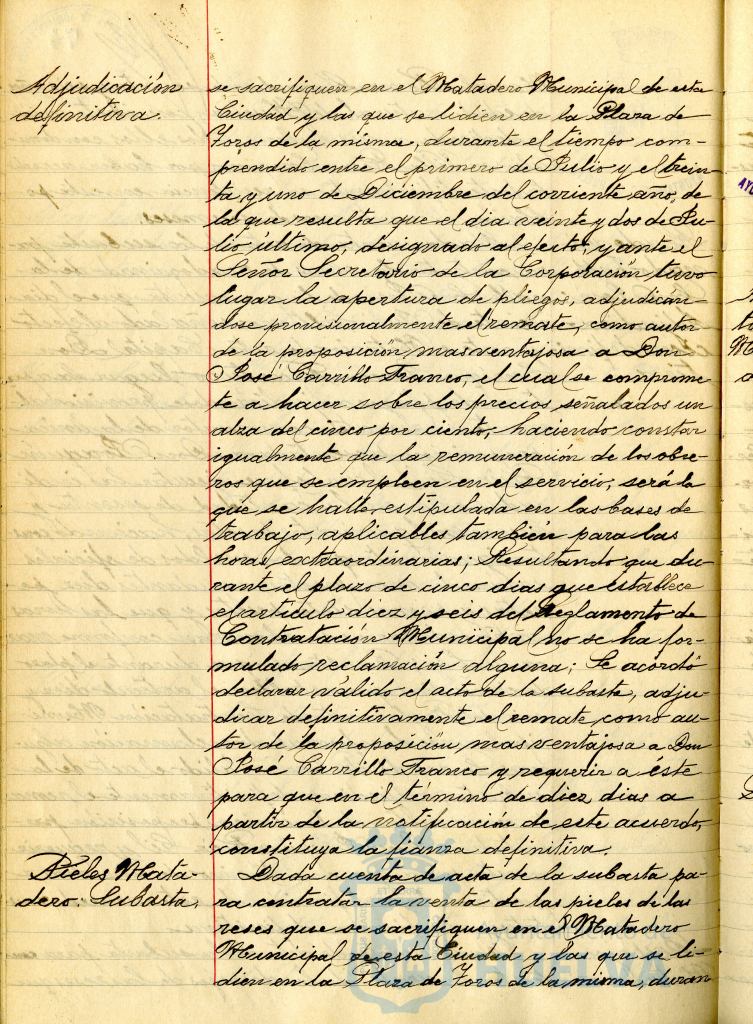 Adjudicación
definitiva.
se sacrifiquen en el Matadero Municipal de esta
Ciudad y las que se lidien en la Plaza de
Toros de la misma, durante el tiempo com-
prendido entre el primero de Julio y el trein-
ta y uno de Diciembre del corriente año, de
la que resulta que el dia veinte y dos de Ju-
lio último, designado al efecto, y ante el
Señor Secretario de la Corporación tuvo
lugar la apertura de pliegos, adjudicán-
dose provisionalmente el remate, como autor
de la proposición mas ventajosa a Don
José Carrillo Franco, el cual se comprome
te a hacer sobre los precios señalados un
alza del cinco por ciento, haciendo constar
igualmente que la remuneración de los obre-
ros que se empleen en el servicio, será la
que se halle estipulada en las bases de
trabajo, aplicables también para las
horas extraordinarias; Resultando que du-
rante el plazo de cinco dias que establece
el artículo diez y seis del Reglamento de
Contratación Municipal no se ha for-
mulado reclamación alguna; Se acordó
declarar válido el acto de la subasta, adju-
dicar definitivamente el remate como au-
tor de la proposición mas ventajosa a Don
José Carrillo Franco y requerir a éste
para que en el término de diez dias a
partir de la notificación de este acuerdo,
constituya la fianza definitiva.
Pieles Mata-
dero: Subasta.
Dada cuenta de acta de la subasta pa-
ra contratar la venta de las pieles de las
reses que se sacrifiquen en el Matadero
Municipal de esta Ciudad y las que se li-
dien en la Plaza de Toros de la misma, duran
HUELVA